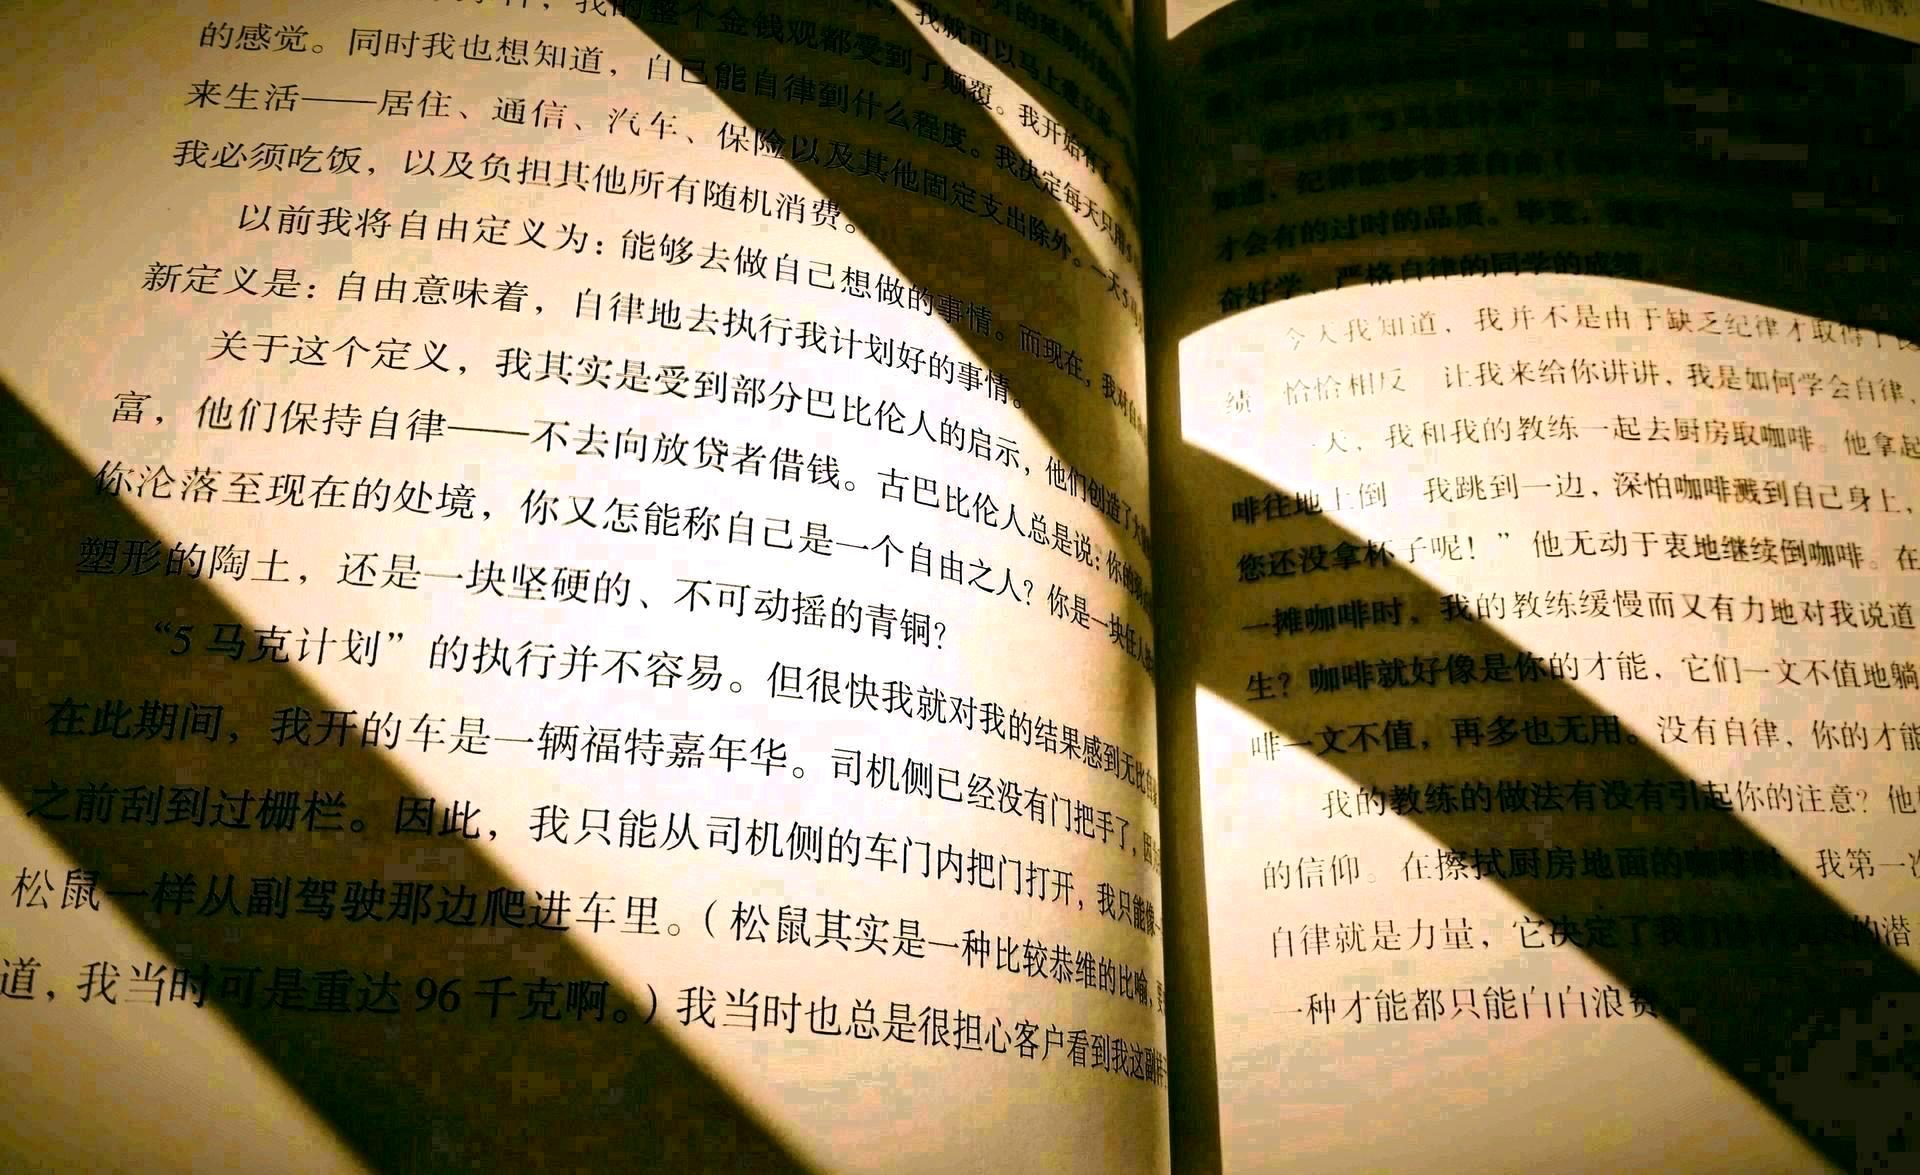 我的整个金钱观都受到了颠覆。我开始有了
的感觉。同时我也想知道，自己能自律到什么程度。我决定每天只用5
来生活——居住、通信、汽车、保险以及其他固定支出除外。一天5马
我必须吃饭，以及负担其他所有随机消费。
以前我将自由定义为：能够去做自己想做的事情。而现在，我对自
新定义是：自由意味着，自律地去执行我计划好的事情。
关于这个定义，我其实是受到部分巴比伦人的启示，他们创造了
富，他们保持自律——不去向放贷者借钱。古巴比伦人总是说：你的
你沦落至现在的处境，你又怎能称自己是一个自由之人？你是一块任人
塑形的陶土，还是一块坚硬的、不可动摇的青铜？
“5 马克计划”的执行并不容易。但很快我就对我的结果感到无比自
在此期间，我开的车是一辆福特嘉年华。司机侧已经没有门把手了，因
之前刮到过栅栏。因此，我只能从司机侧的车门内把门打开，我只能像
松鼠一样从副驾驶那边爬进车里。（松鼠其实是一种比较恭维的比喻，要
道，我当时可是重达 96 千克啊。）我当时也总是很担心客户看到我这副样
知道，纪律能够带来自由
才会有的过时的品质。毕竟，我
奋好学、严格自律的同学的成绩。
今天我知道，我并不是由于缺乏纪律才取得了
绩 恰恰相反 让我来给你讲讲，我是如何学会自律，
一天，我和我的教练一起去厨房取咖啡。他拿起
啡往地上倒 我跳到一边，深怕咖啡溅到自己身上，
您还没拿杯子呢！”他无动于衷地继续倒咖啡。在
一摊咖啡时，我的教练缓慢而又有力地对我说道
生？咖啡就好像是你的才能，它们一文不值地躺
啡一文不值，再多也无用。没有自律，你的才能
我的教练的做法有没有引起你的注意？他
的信仰。在擦拭厨房地面的咖啡时，我第一次
自律就是力量，它决定了我们的潜
一种才能都只能白白浪费。